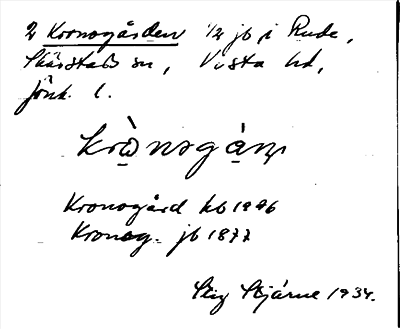 2 Kronogården 1/2 jb i Rude,
Skärstads sn, Vista hd,
Jönk. l.
krò̱nogá̱ṇ
Kronogård kb 1996
Kronog. jb 1877
Stig Stjärne 1934.